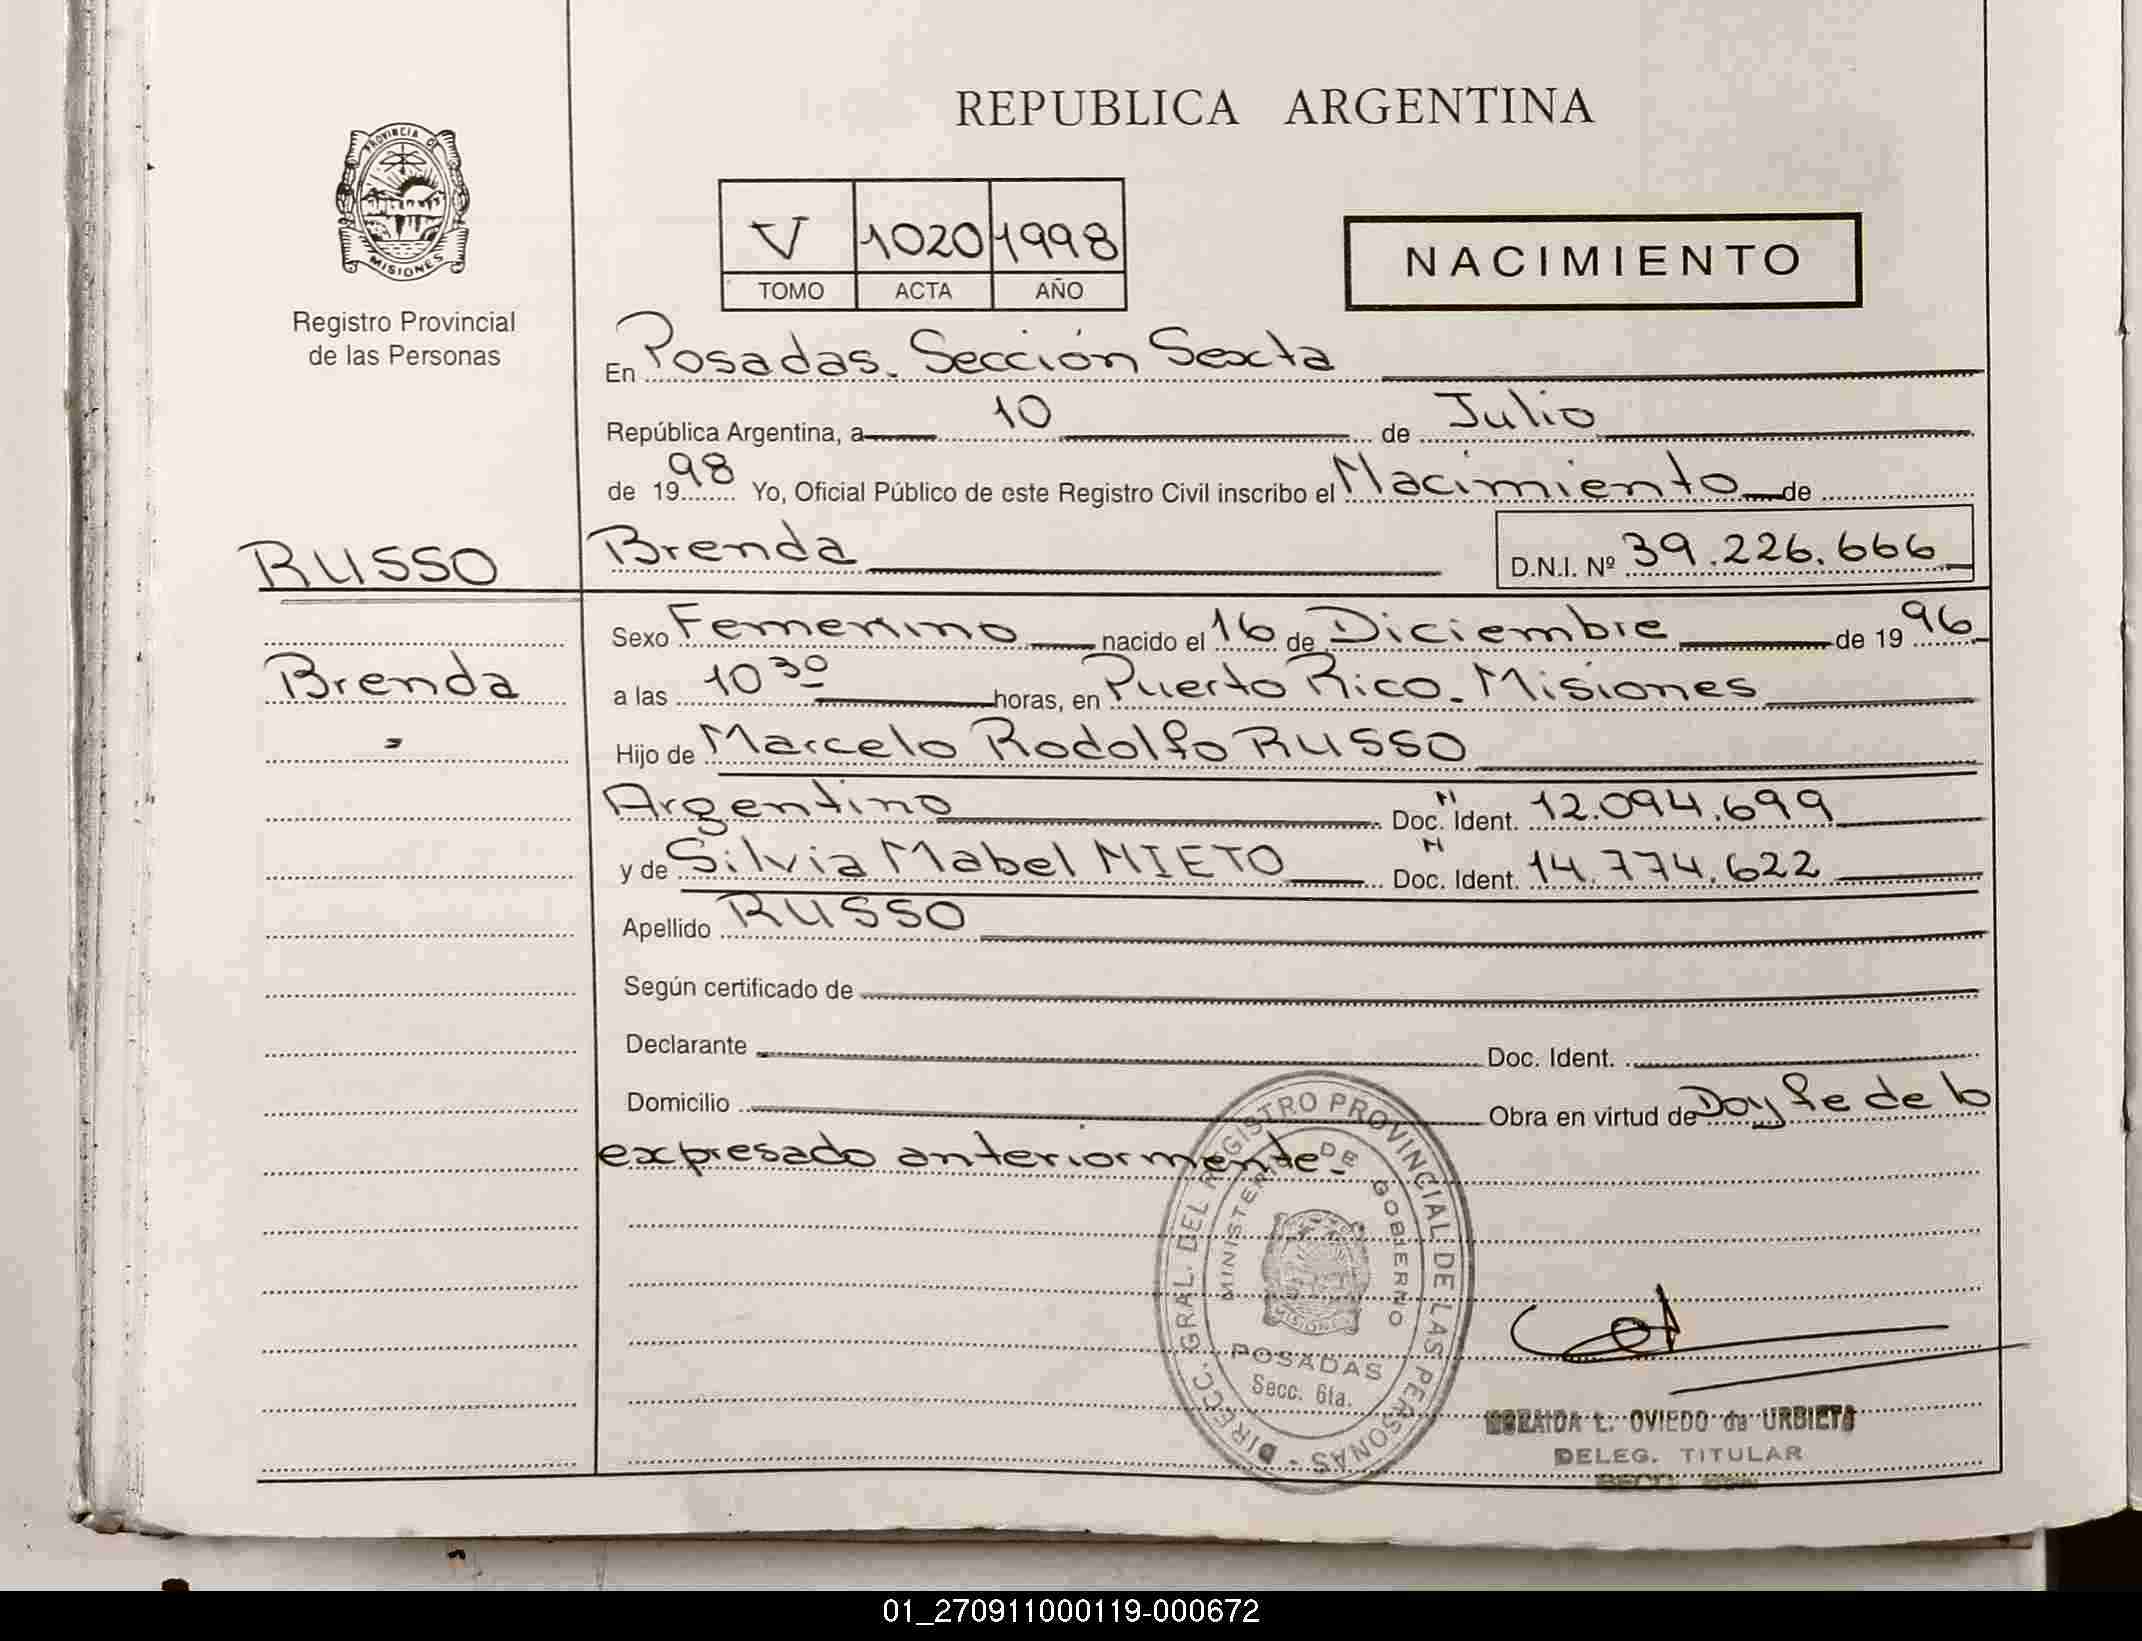 REPUBLICA ARGENTINA
PROVINCIA DE
MISIONES
Registro Provincial
de las Personas
V 1020 1998
TOMO ACTA AÑO
NACIMIENTO
En Posadas. Sección Sexta
República Argentina, a 10 de Julio
de 1998 Yo, Oficial Público de este Registro Civil inscribo el Nacimiento de
RUSSO Brenda D.N.I. Nº 39.226.666
Sexo Femenino nacido el 16 de Diciembre de 1996
Brenda
a las 10 30 horas, en Puerto Rico. Misiones
Hijo de Marcelo Rodolfo RUSSO
Argentino Doc. Ident. 12.094.699
y de Silvia Mabel NIETO Doc. Ident. 14.774.622
Apellido RUSSO
Según certificado de
Declarante Doc. Ident.
Domicilio Obra en virtud de Doy fe de lo
expresado anteriormente.
DIRECC. GRAL. DEL REGISTRO PROVINCIAL DE LAS PERSONAS
MINISTERIO DE GOBIERNO
MISIONES
POSADAS
Secc. 6ta.
L. OVIEDO de URBIETA
DELEG. TITULAR
01_270911000119-000672